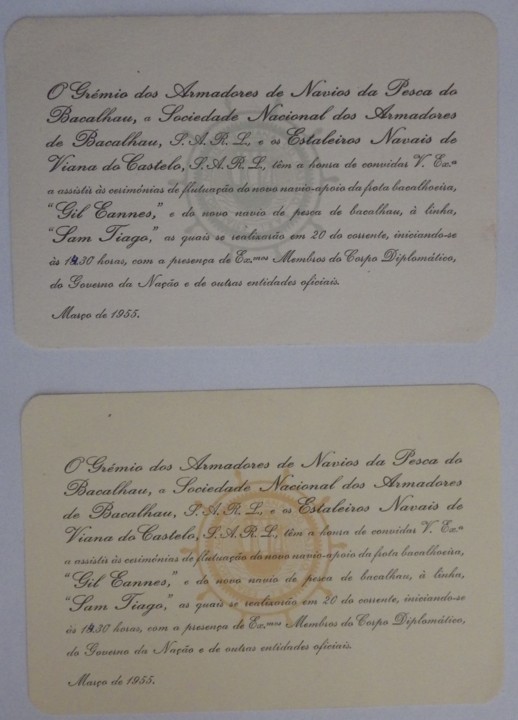 O Grémio dos Armadores de Navios da Pesca do
Bacalhau, a Sociedade Nacional dos Armadores
de Bacalhau, S. A. R. L., e os Estaleiros Navais de
Viana do Castelo, S. A. R. L., têm a honra de convidar V. Ex.ª
a assistir às cerimónias de flutuação do novo navio-apoio da frota bacalhoeira,
“Gil Eannes,” e do novo navio de pesca de bacalhau, à linha,
“Sam Tiago,” as quais se realizarão em 20 do corrente, iniciando-se
às 14.30 horas, com a presença de Ex.mos Membros do Corpo Diplomático,
do Governo da Nação e de outras entidades oficiais.
Março de 1955.
O Grémio dos Armadores de Navios da Pesca do
Bacalhau, a Sociedade Nacional dos Armadores
de Bacalhau, S. A. R. L., e os Estaleiros Navais de
Viana do Castelo, S. A. R. L., têm a honra de convidar V. Ex.ª
a assistir às cerimónias de flutuação do novo navio-apoio da frota bacalhoeira,
“Gil Eannes,” e do novo navio de pesca de bacalhau, à linha,
“Sam Tiago,” as quais se realizarão em 20 do corrente, iniciando-se
às 14.30 horas, com a presença de Ex.mos Membros do Corpo Diplomático,
do Governo da Nação e de outras entidades oficiais.
Março de 1955.